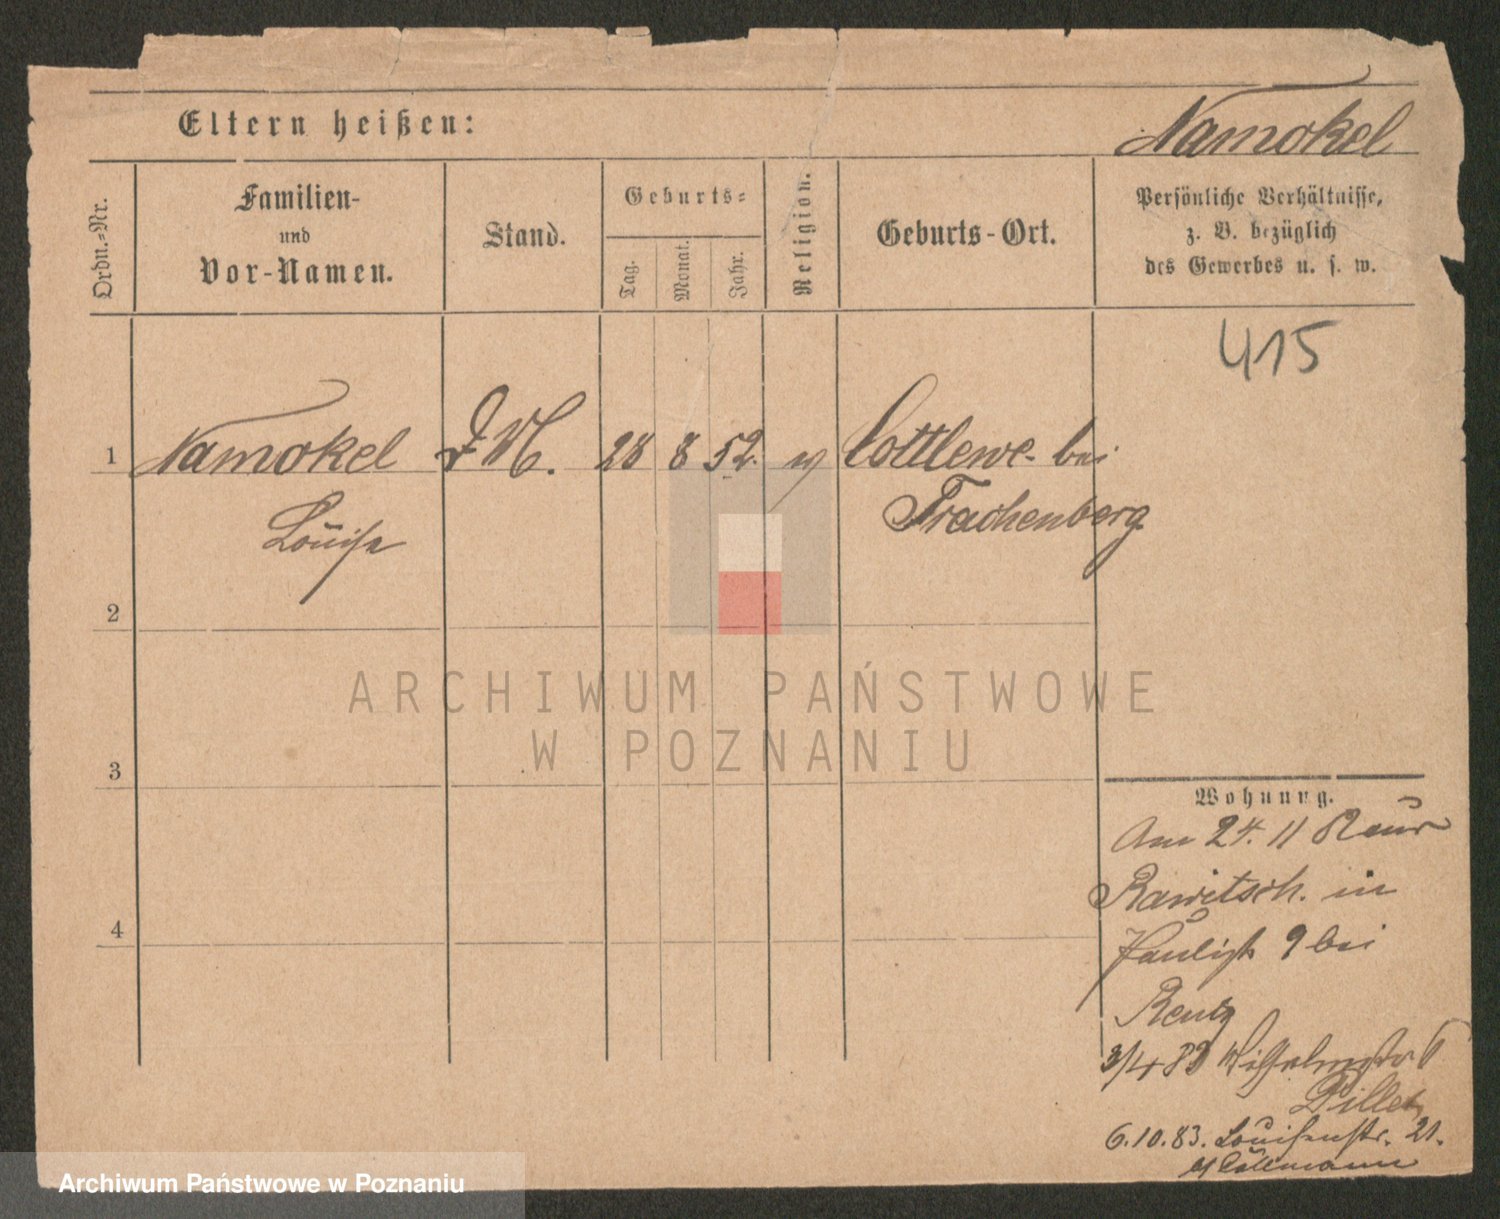 Eltern heißen:
Namokel
Ordn.-Nr.
Familien-
und
Vor-Namen.
Stand.
Geburts-
Tag.
Monat.
Jahr.
Religion.
Geburts-Ort.
Persönliche Verhältnisse,
z. B. bezüglich
des Gewerbes u. s. w.
415
1 Namokel 28 8 52. Cottlewe bei
Louise Trachenberg
2
3
4
Wohnung.
Am 24. 11
Rawitsch. in
9 bei
Rentz
3/4 83 Wilhelmstr. 6
6.10.83. Louisenstr. 21.
ARCHIWUM PAŃSTWOWE
W POZNANIU
Archiwum Państwowe w Poznaniu